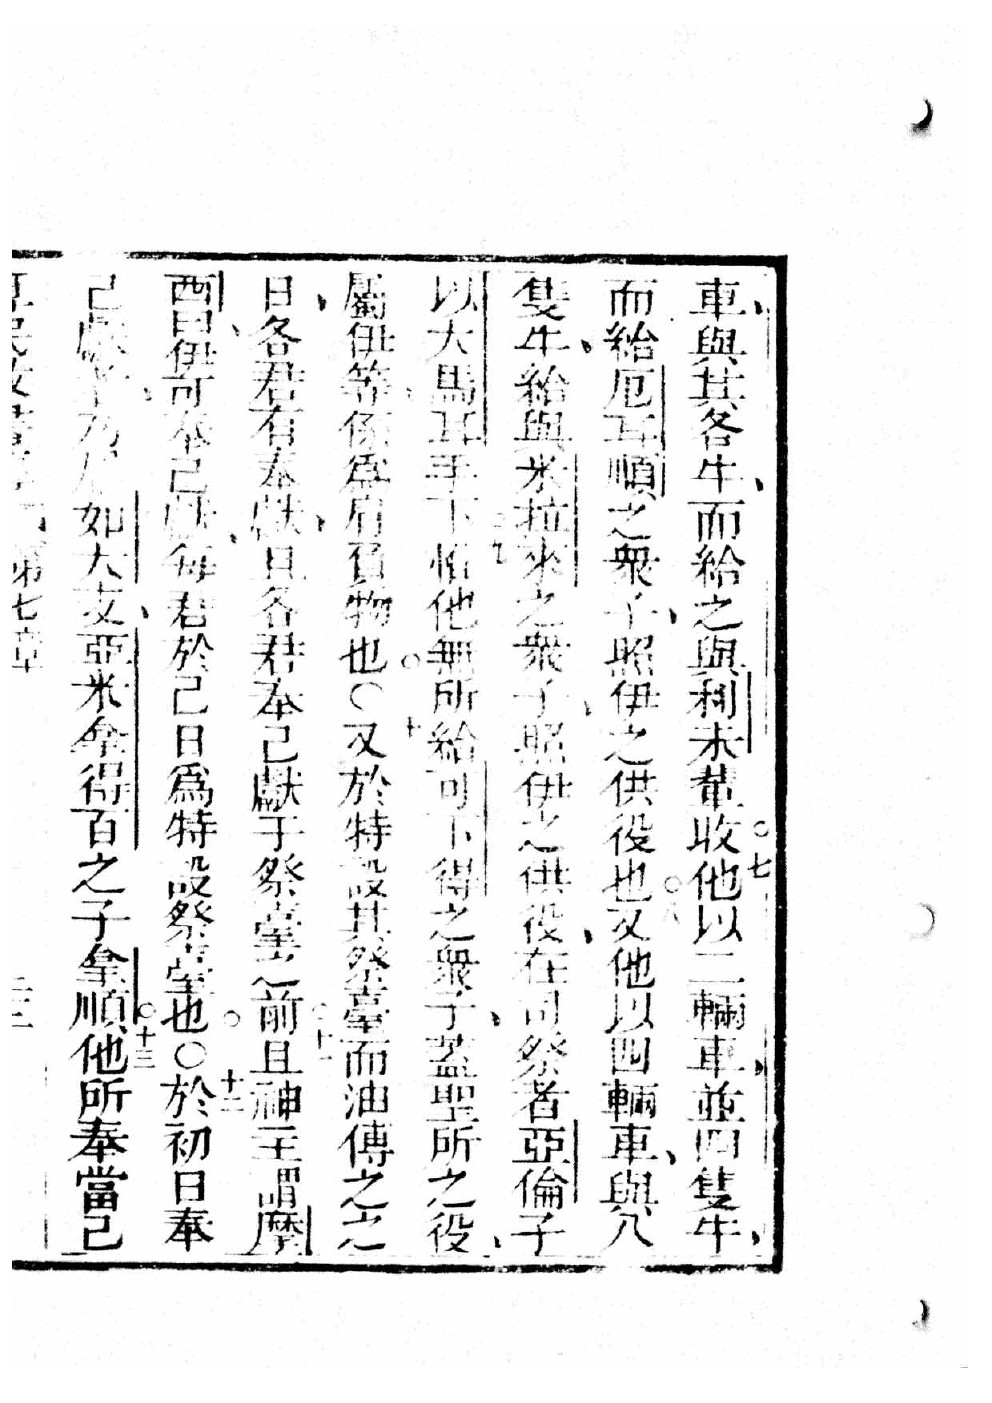 車與其各牛而給之與利未輩收他以二輛車並四隻牛
七
而給厄耳順之衆子照伊之供役也又他以四輛車與八
八
隻牛給與米拉來之衆子照伊之供役在司祭者亞倫子
九
以大馬耳手下惟他無所給可下得之衆子蓋聖所之役
十
屬伊等係爲肩負物也○又於特設其祭臺而油傅之之
十一
日各君有奉獻且各君奉己獻于祭臺之前且神主謂摩
十二
西曰伊可奉己獻每君於己日爲特設祭臺也○於初日奉
十三
己獻者乃 如大支亞米拿得百之子拿順他所奉當己
民 第七章